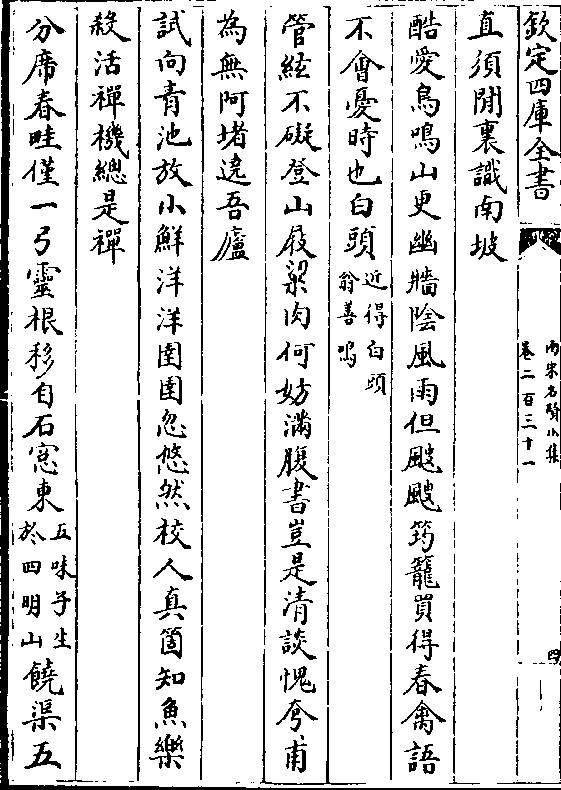 欽定四庫全書
兩宋名賢小集
卷二百三十一
四
直須閒裏識南坡
酷愛鳥鳴山更幽牆陰風雨但颼颼筠籠買得春禽語
不會憂時也白頭近得白頭翁善鳴
管絃不礙登山屐粱肉何妨滿腹書豈是清談愧夷甫
為無阿堵遶吾廬
試向青池放小鮮洋洋圉圉忽悠然校人真箇知魚樂
殺活禪機總是禪
分席春畦僅一弓靈根移自石窓東五味子生於四明山饒渠五